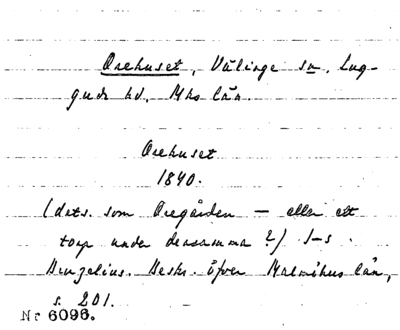 Orehuset, Välinge sn. Lug-
gude hd. Mhs län.
Orehuset
1840.
(dets. som Oregården — eller ett
torp under densamma?) J-s.
Bruzelius. Beskr. öfver Malmöhus län,
s. 201.
Nr 6096.